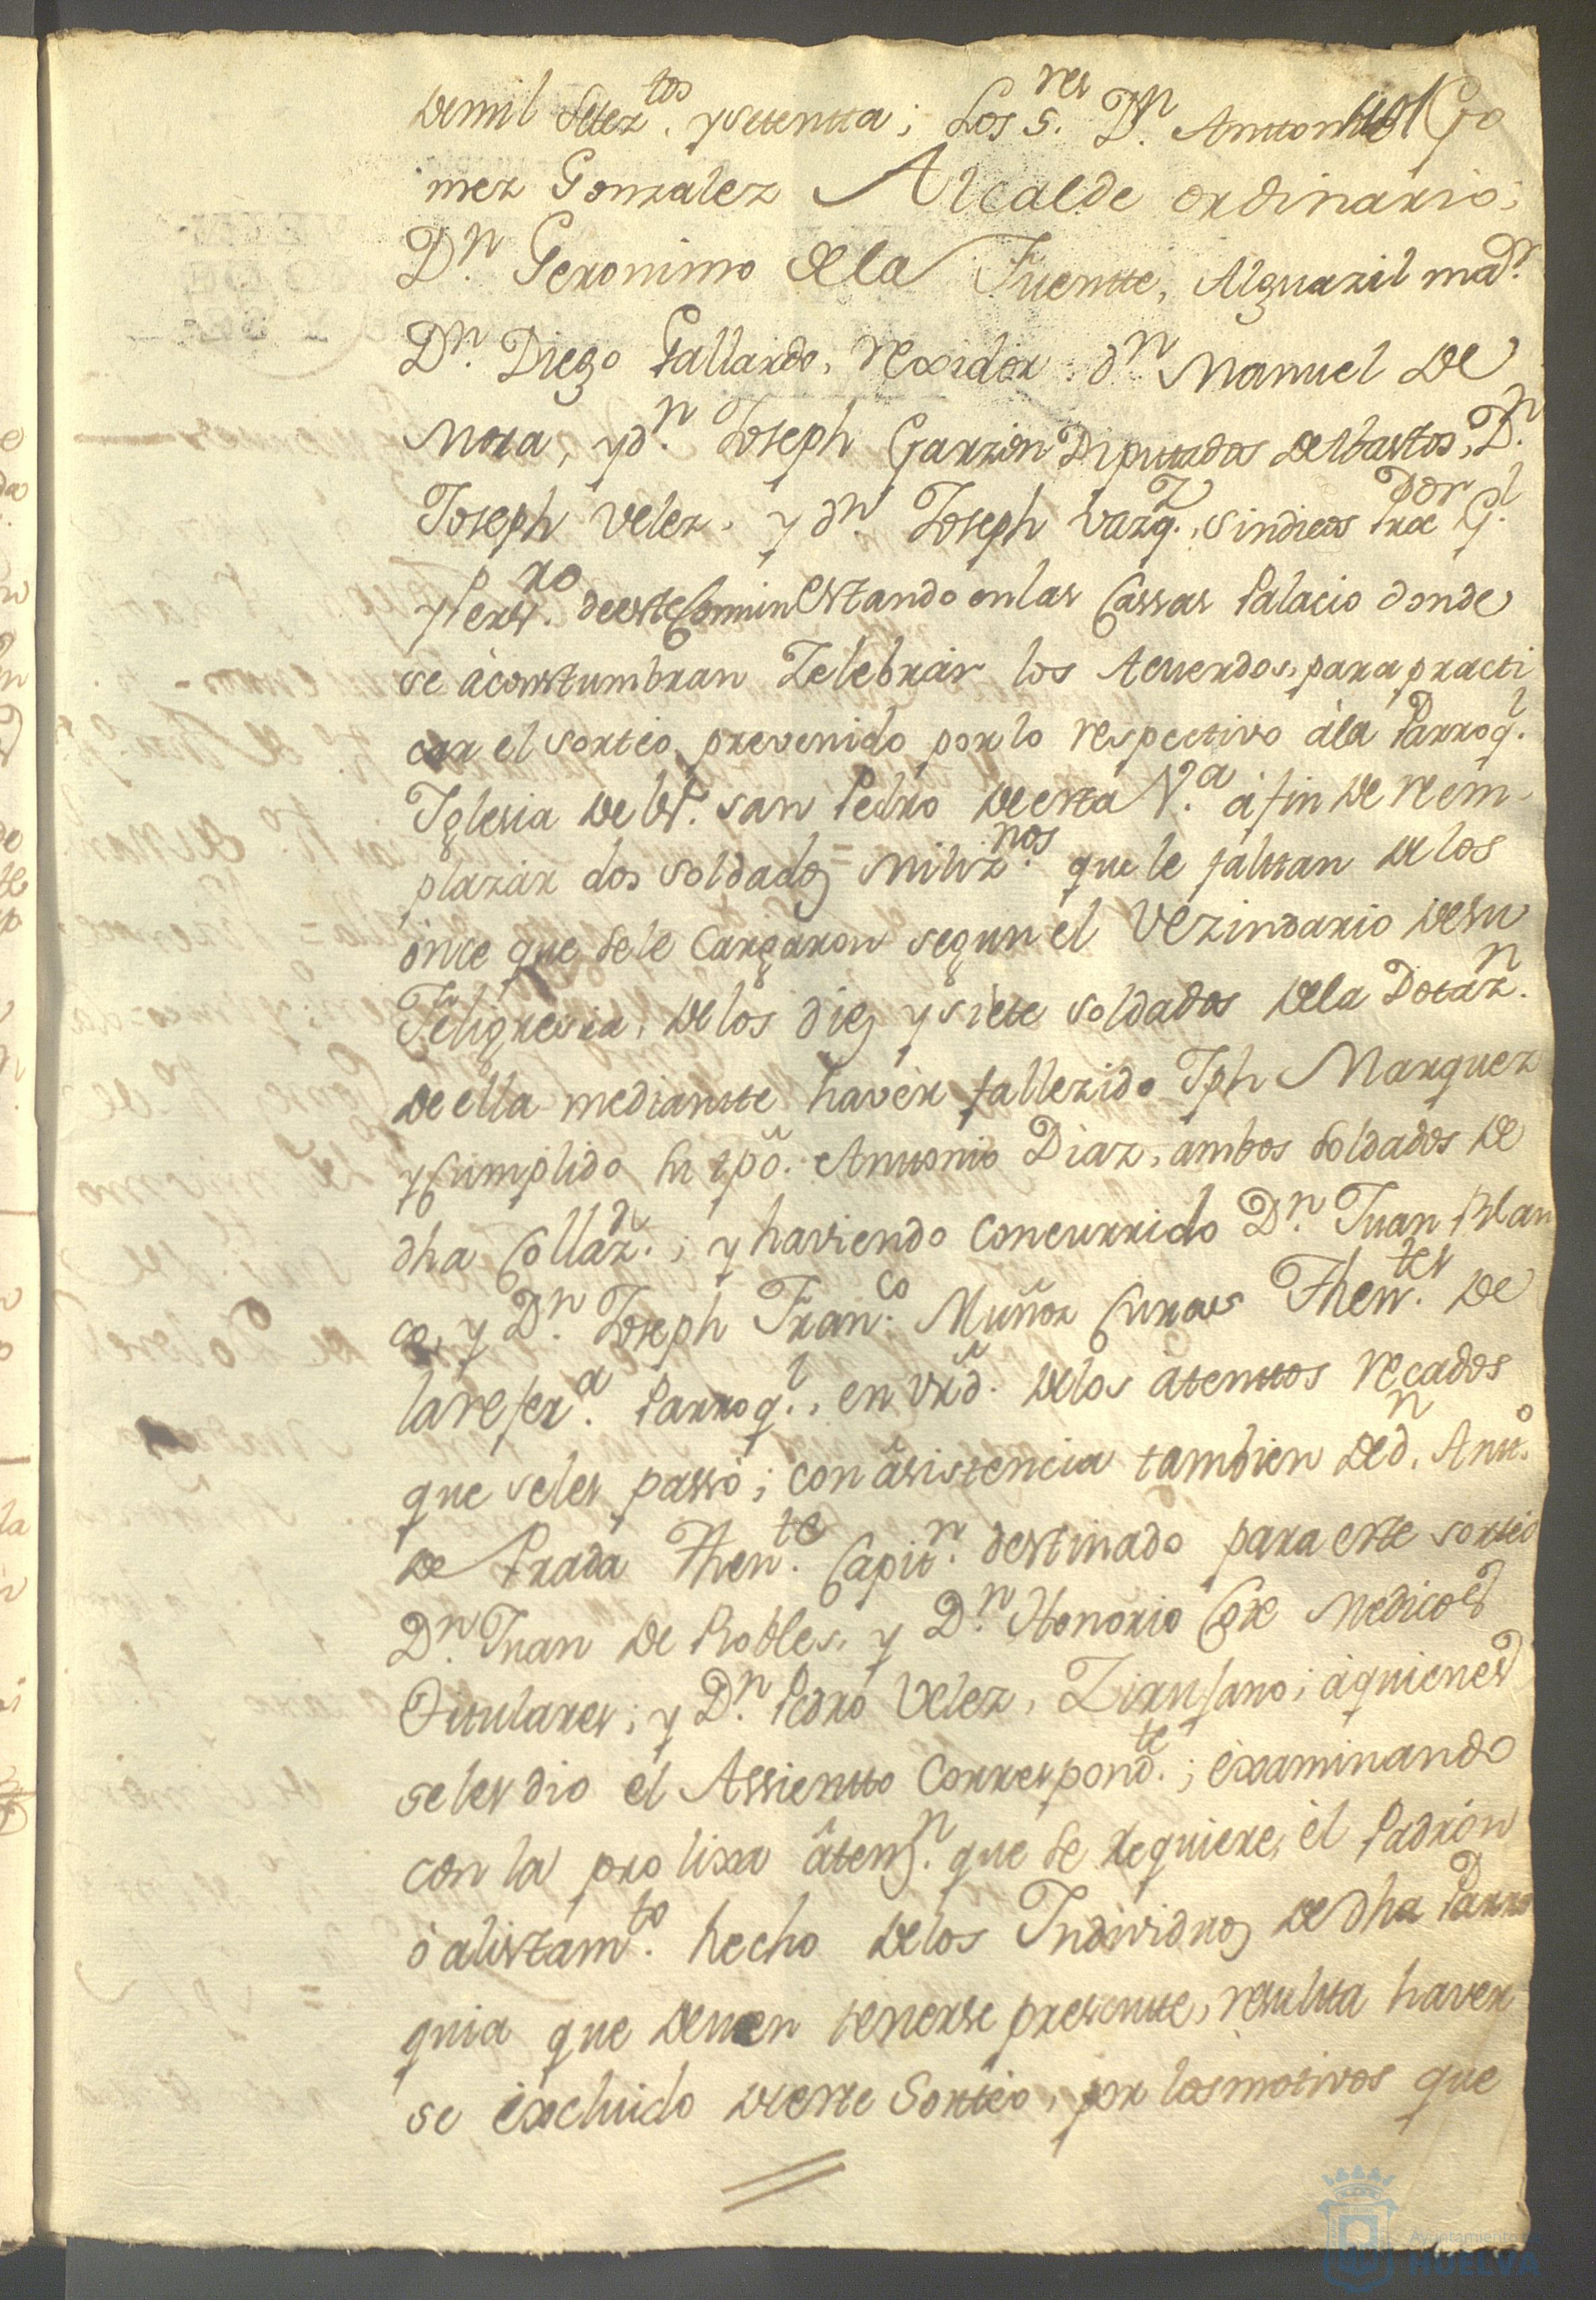 de mil Setez.tos y setentta; Los S.res D.n Anttonio Go
mez Gonzalez Alcalde ordinario;
D.n Geronimo de la Fuentte, Alguazil ma.r
D.n Diego Gallardo, rexidor d.n Manuel de
Mora, y d.n Joseph Garzon Diputados de Abastos, D.n
Joseph Velez, y d.n Joseph Vazq.z, Sindicos Proc.dor G.l
y Pers.ro de este Comun Estando en las Cassas Palacio donde
se acostumbran Zelebrar los Acuerdos, para practi
car el sorteo, prevenido por lo respectivo àla Parroq.l
Iglesia de S.r San Pedro de esta V.a à fin de reem-
plazar dos soldados = Miliz.nos que le faltan de los
once que se le Cargaron segun el Vezindario de su
Feligresia, de los diez y siete soldados de la Dotaz.n
de ella mediantte haver fallezido Jph Marquez
y Cumplido su tpõ. Anttonio Diaz, ambos Soldados de
dha Collaz.n; y haviendo Concurrido D.n Juan Blan
co, y D.n Joseph Fran.co Muñoz Curas Then.tes de
la refer.a Parroq.l, en vrd. de los atenttos recados
que se les passò; con asistencia tambien de d.n Antt.o
de Prada Then.te Capit.n destinado para este sorteo
D.n Juan de Robles, y D.n Honorio Core Medicos
Titulares; y D.n Pedro Velez, Zirujano; à quienes
se les dio el Assientto Correspond.te; èxaminando
con la prolixa atenz.n que se requiere, èl Padròn
ò alistam.to hecho de los Individuos de dha Parro
quia que deven tenerse presentte, resulta haver
se èxcluido de este Sorteo, por los motivos que
Ayuntamiento de
HUELVA